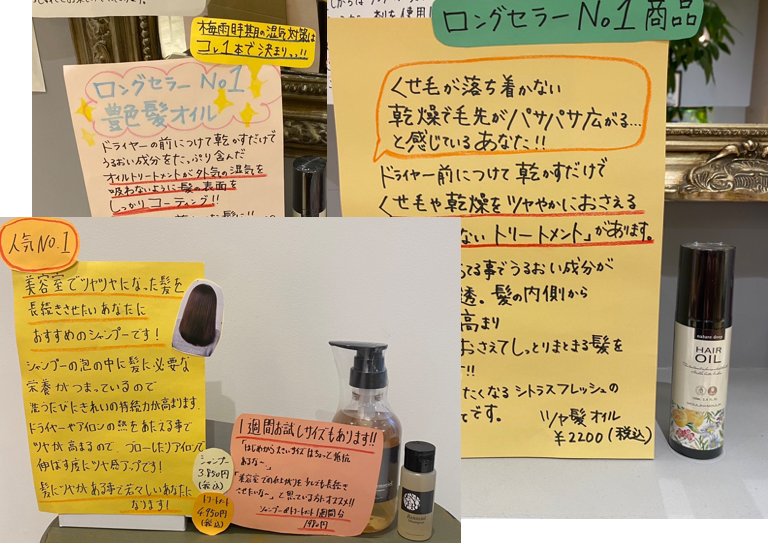 梅雨時期の湿気対策は
コレ1本で決まりっっ!!
ロングセラーNo1
艶髪オイル
ドライヤーの前につけて乾かすだけで
うるおい成分をたっぷり含んだ
オイルトリートメントが外気の湿気を
吸わないように髪の表面を
しっかりコーティング!!
ロングセラーNo1商品
くせ毛が落ち着かない
乾燥で毛先がパサパサ広がる…
と感じているあなた!!
ドライヤー前につけて乾かすだけで
くせ毛や乾燥をツヤやかにおさえる
ないトリートメント」があります。
てる事でうるおい成分が
透。髪の内側から
高まり
おさえてしっとりまとまる髪を
!!
たくなるシトラスフレッシュの
です。
ツヤ髪オイル
¥2200(税込)
nature deep
HAIR
OIL
人気No.1
美容室でツヤツヤになった髪を
長続きさせたいあなたに
おすすめのシャンプーです!
シャンプーの泡の中に髪に必要な
栄養がつまっているので
洗うたびにきれいの持続力が高まります。
ドライヤーやアイロンの熱をあたえる事で
ツヤが高まるので、ブローしたりアイロンで
伸ばす度にツヤ感アップです!
髪にツヤがある事で若々しいあなたに
なります!
シャンプー
3.850円
(税込)
トリートメント
4.950円
(税込)
1週間お試しサイズもあります!!
「はじめから大きいサイズはちょっと抵抗
あるなー」
と思っている方にオススメ!!
シャンプー&トリートメント1週間分